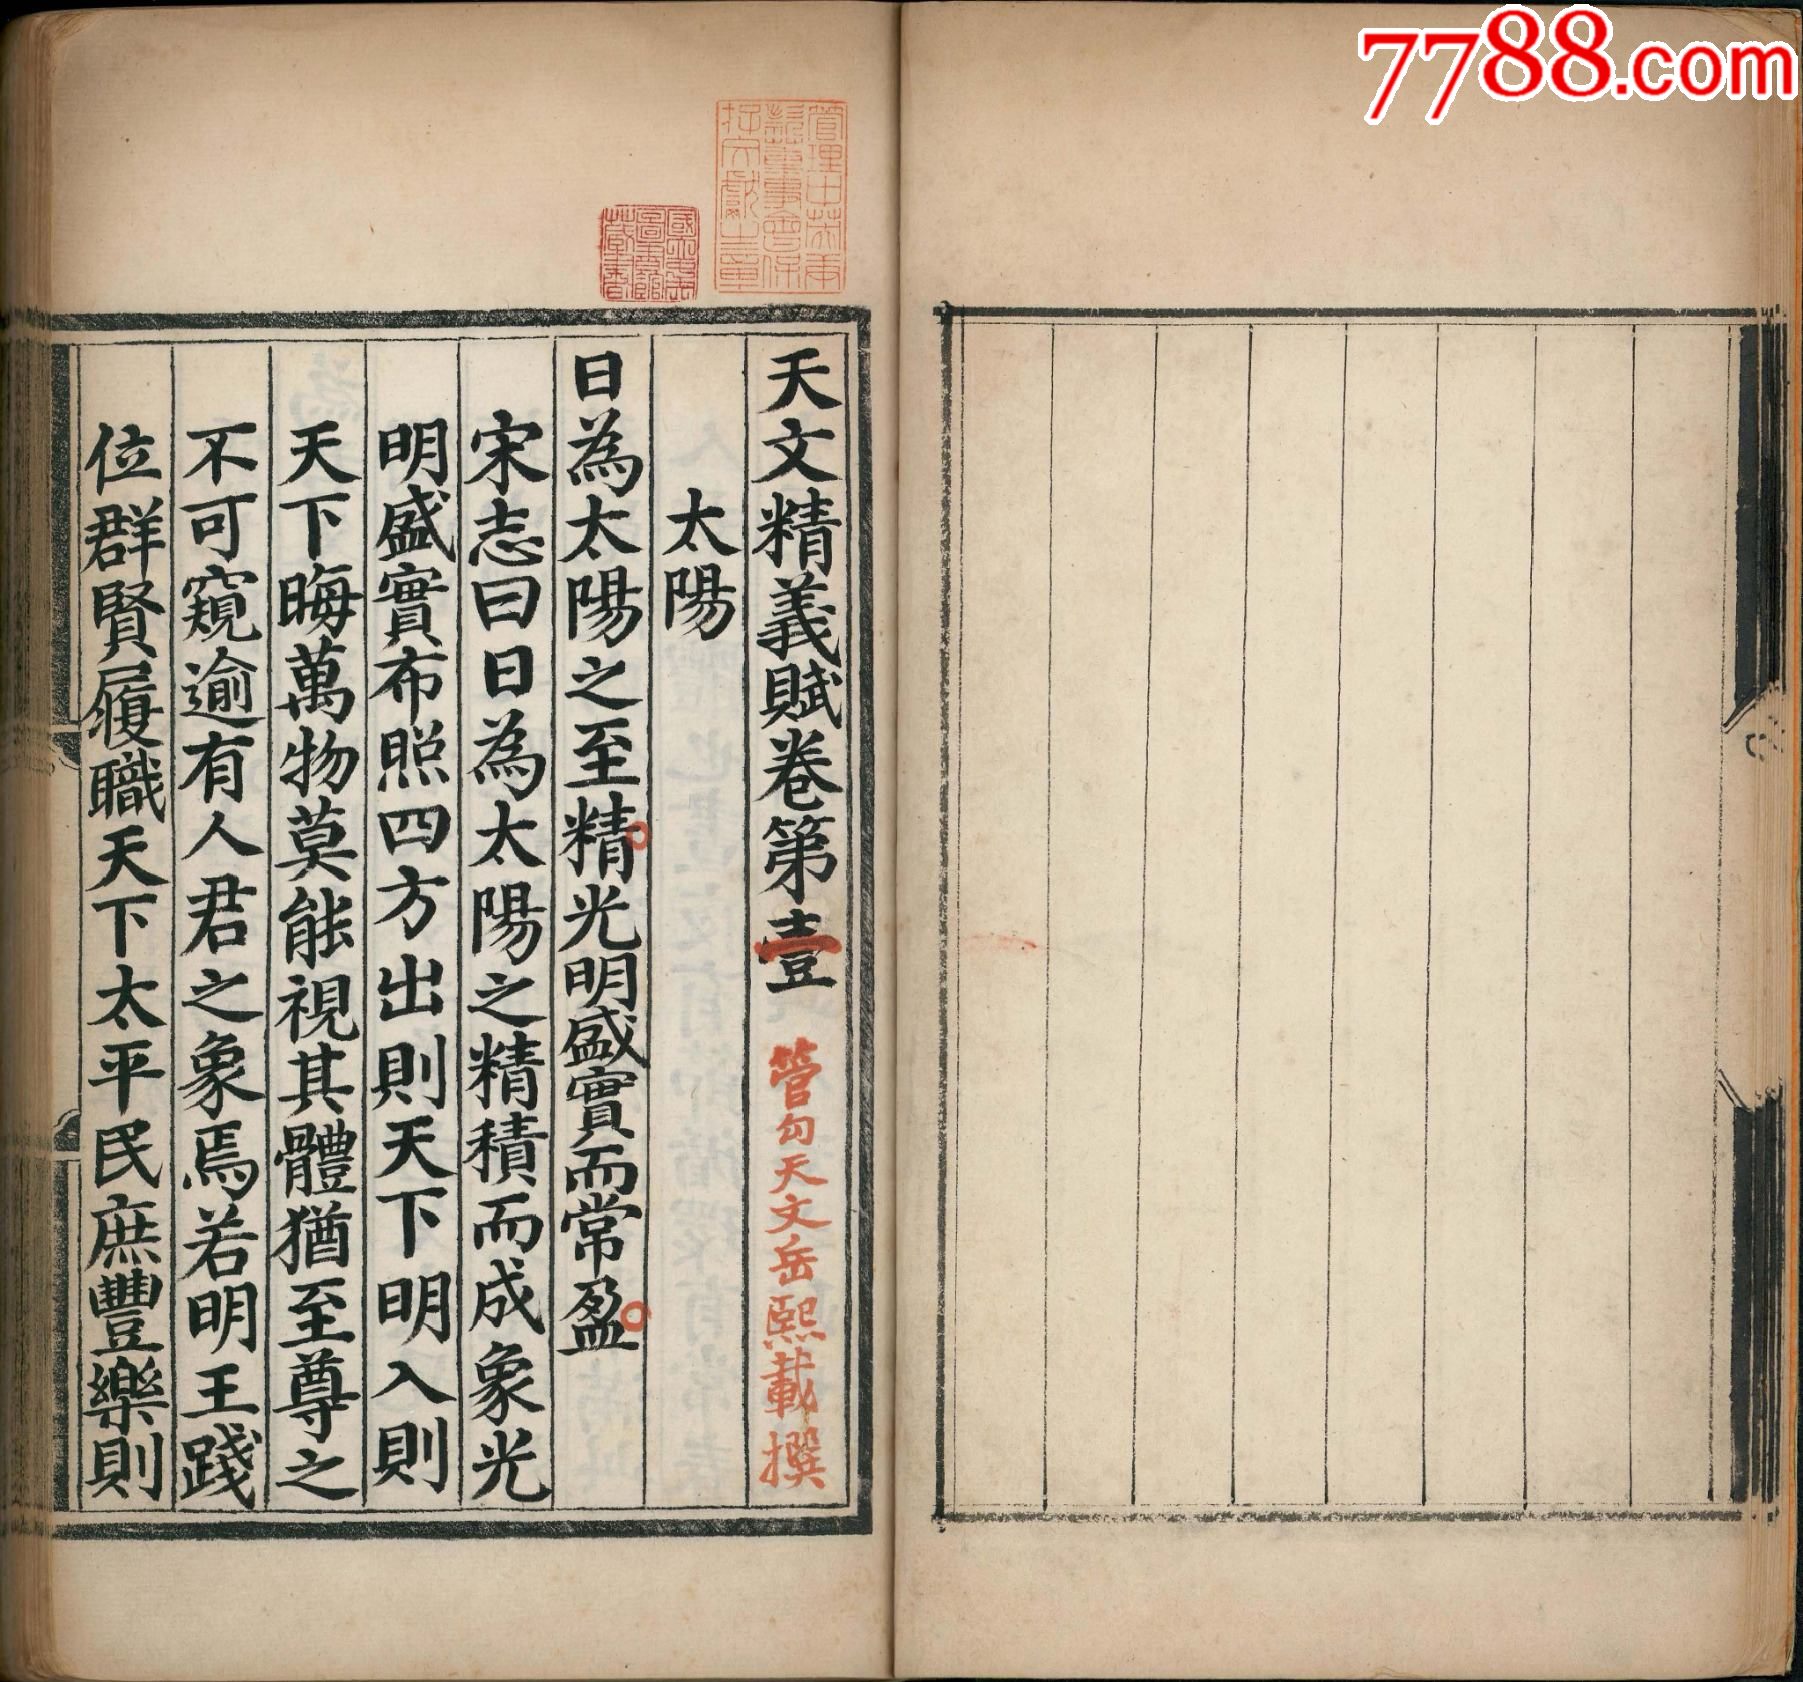 7788.com
管理中英庚
款董事會保
存文獻之章
國立中央
圖書館
藏書
天文精義賦卷第壹 管勾天文岳熙載撰
太陽
日為太陽之至精光明盛實而常盈
宋志曰日為太陽之精積而成象光
明盛實布照四方出則天下明入則
天下晦萬物莫能視其體猶至尊之
不可窺逾有人君之象焉若明王踐
位群賢履職天下太平民庶豐樂則